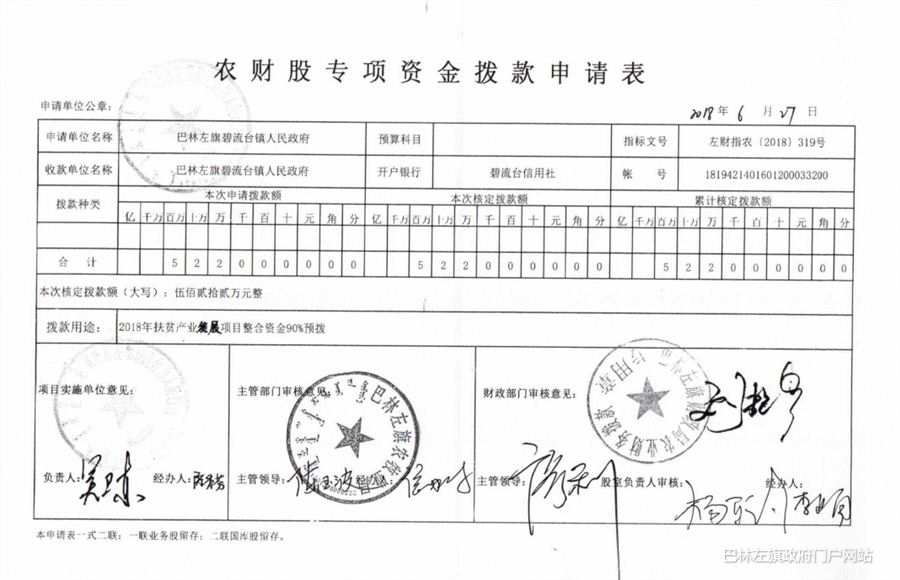 农财股专项资金拨款申请表
申请单位公章： 2018年6月27日
申请单位名称 巴林左旗碧流台镇人民政府 预算科目 指标文号 左财指农〔2018〕319号
收款单位名称 巴林左旗碧流台镇人民政府 开户银行 碧流台信用社 帐号 1819421401601200033200
拨款种类 本次申请拨款额 本次核定拨款额 累计核定拨款额
亿 千万 百万 十万 万 千 百 十 元 角 分 亿 千万 百万 十万 万 千 百 十 元 角 分 亿 千万 百万 十万 万 千 百 十 元 角 分
合计 5 2 2 0 0 0 0 0 0 5 2 2 0 0 0 0 0 0 5 2 2 0 0 0 0 0 0
本次核定拨款额（大写）：伍佰贰拾贰万元整
拨款用途： 2018年扶贫产业发展项目整合资金90%预拨
项目实施单位意见： 主管部门审核意见： 财政部门审核意见：
负责人： 经办人： 主管领导： 经办人： 主管领导： 股室负责人审核： 经办人：
本申请表一式二联：一联业务股留存；二联国库股留存。
巴林左旗政府门户网站